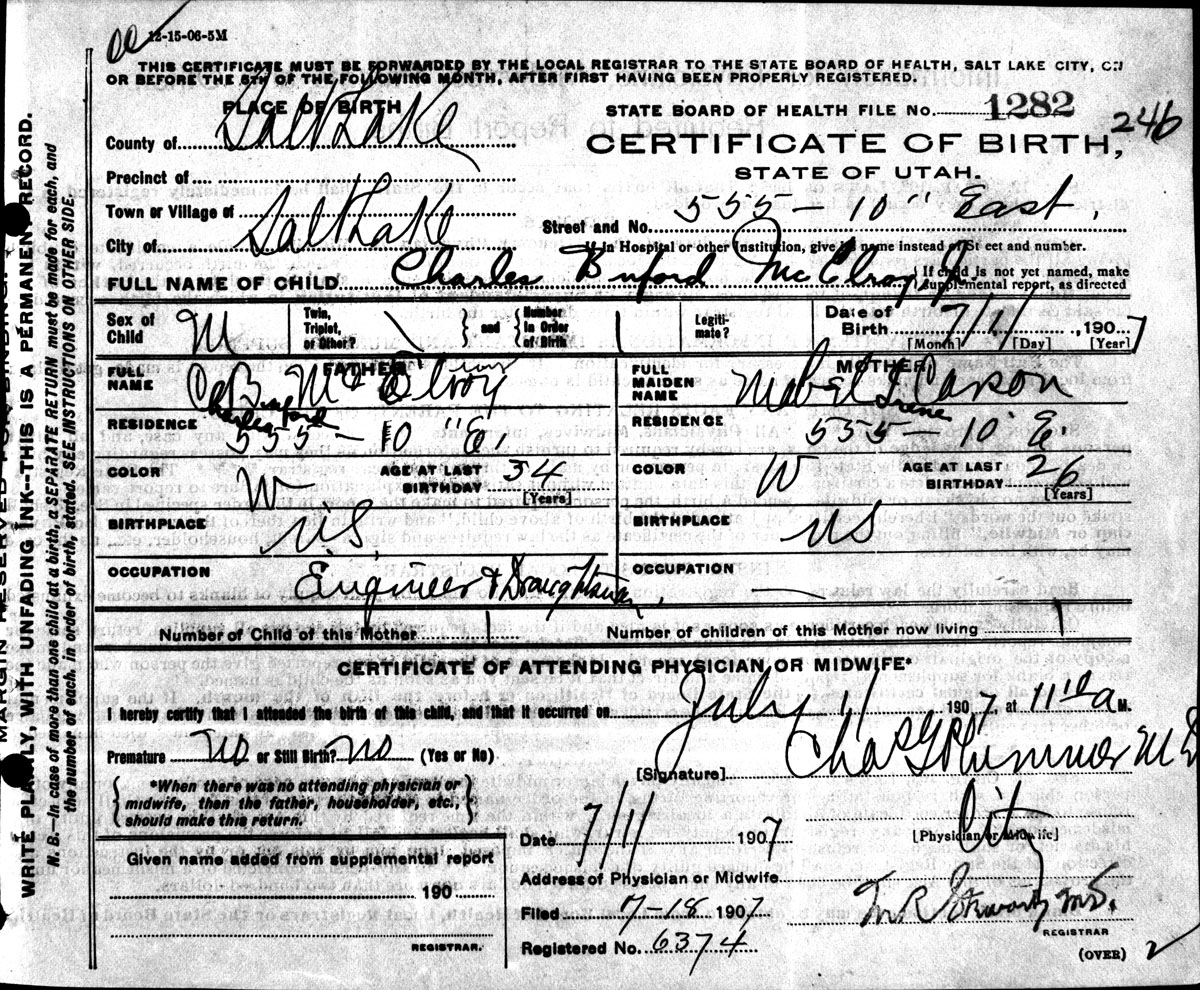 12-15-06-5M
THIS CERTIFICATE MUST BE FORWARDED BY THE LOCAL REGISTRAR TO THE STATE BOARD OF HEALTH, SALT LAKE CITY, ON
OR BEFORE THE 5TH OF THE FOLLOWING MONTH, AFTER FIRST HAVING BEEN PROPERLY REGISTERED.
PLACE OF BIRTH
STATE BOARD OF HEALTH FILE No. 1282
246
County of Salt Lake
CERTIFICATE OF BIRTH,
STATE OF UTAH.
Precinct of
Town or Village of
City of Salt Lake
Street and No. 555 - 10" East.
If in Hospital or other Institution, give its name instead of Street and number.
FULL NAME OF CHILD Charles Buford McElroy Jr
If child is not yet named, make supplemental report, as directed
Sex of Child M
Twin, Triplet, or Other? \ and Number in Order of Birth 1
Legitimate?
Date of Birth 7/11, 1907
[Month] [Day] [Year]
FATHER
FULL NAME C B. McElroy
Charles Buford
RESIDENCE 555 - 10 "E.
COLOR W
AGE AT LAST BIRTHDAY 34 [Years]
BIRTHPLACE U.S.
OCCUPATION Engineer & Draughtsman.
MOTHER
FULL MAIDEN NAME Mabel I. Caxon
Irene
RESIDENCE 555 - 10" E.
COLOR W
AGE AT LAST BIRTHDAY 26 [Years]
BIRTHPLACE US
OCCUPATION
Number of Child of this Mother 1
Number of children of this Mother now living 1
CERTIFICATE OF ATTENDING PHYSICIAN OR MIDWIFE*
I hereby certify that I attended the birth of this child, and that it occurred on July 11 1907, at 11 a M.
Premature no or Still Birth? no (Yes or No)
[Signature] Chas G Plummer M D
*When there was no attending physician or midwife, then the father, householder, etc., should make this return.
[Physician or Midwife]
Date 7/11 1907
Given name added from supplemental report
190
REGISTRAR.
Address of Physician or Midwife City
Filed 7-18 1907
M.D.
REGISTRAR
Registered No. 6374
(OVER) 2
MARGIN RESERVED FOR BINDING.
WRITE PLAINLY, WITH UNFADING INK--THIS IS A PERMANENT RECORD.
N. B.--In case of more than one child at a birth, a SEPARATE RETURN must be made for each, and
the number of each, in order of birth, stated. SEE INSTRUCTIONS ON OTHER SIDE.